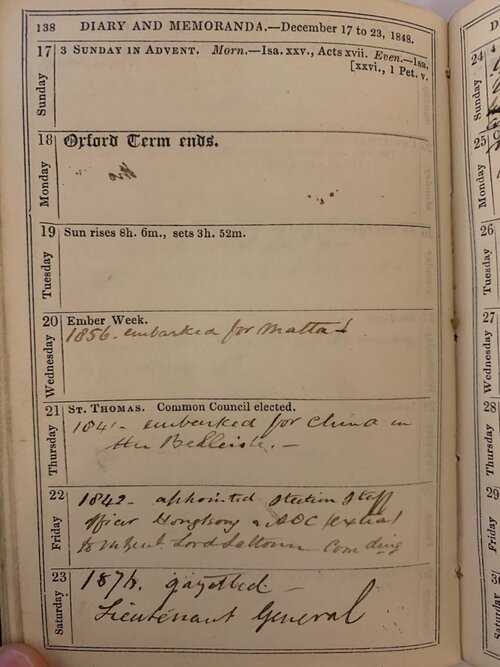 138 DIARY AND MEMORANDA.—December 17 to 23, 1848.
17 3 SUNDAY IN ADVENT. Morn.—Isa. xxv., Acts xvii. Even.—Isa.
[xxvi., 1 Pet. v.
Sunday
18 Oxford Term ends.
Monday
19 Sun rises 8h. 6m., sets 3h. 52m.
Tuesday
20 Ember Week.
1856. embarked for Malta
Wednesday
21 ST. THOMAS. Common Council elected.
184 - embarked for China in
the Belleisle. -
Thursday
22 1842 - appointed Station Staff
officer Hongkong & ADC
to Lord Saltoun Comding
Friday
23 187 . gazetted -
Lieutenant General
Saturday
24
Sunday
25
Monday
26
Tuesday
27
Wednesday
28
Thursday
29
Friday